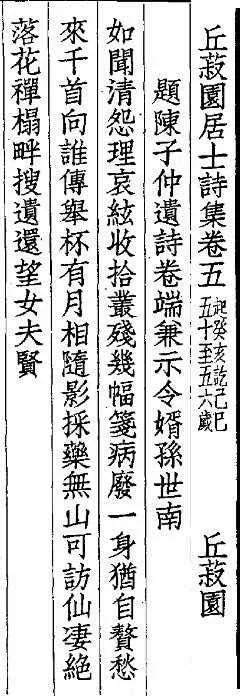 丘菽園居士詩集卷五 起癸亥訖己巳五十至五六歲 丘菽園
題陳子仲遺詩卷端兼示令婿孫世南
如聞清怨理哀絃收拾叢殘幾幅箋病廢一身猶自贅愁
來千首向誰傳舉杯有月相隨影採藥無山可訪仙凄絕
落花禪榻畔搜遺還望女夫賢